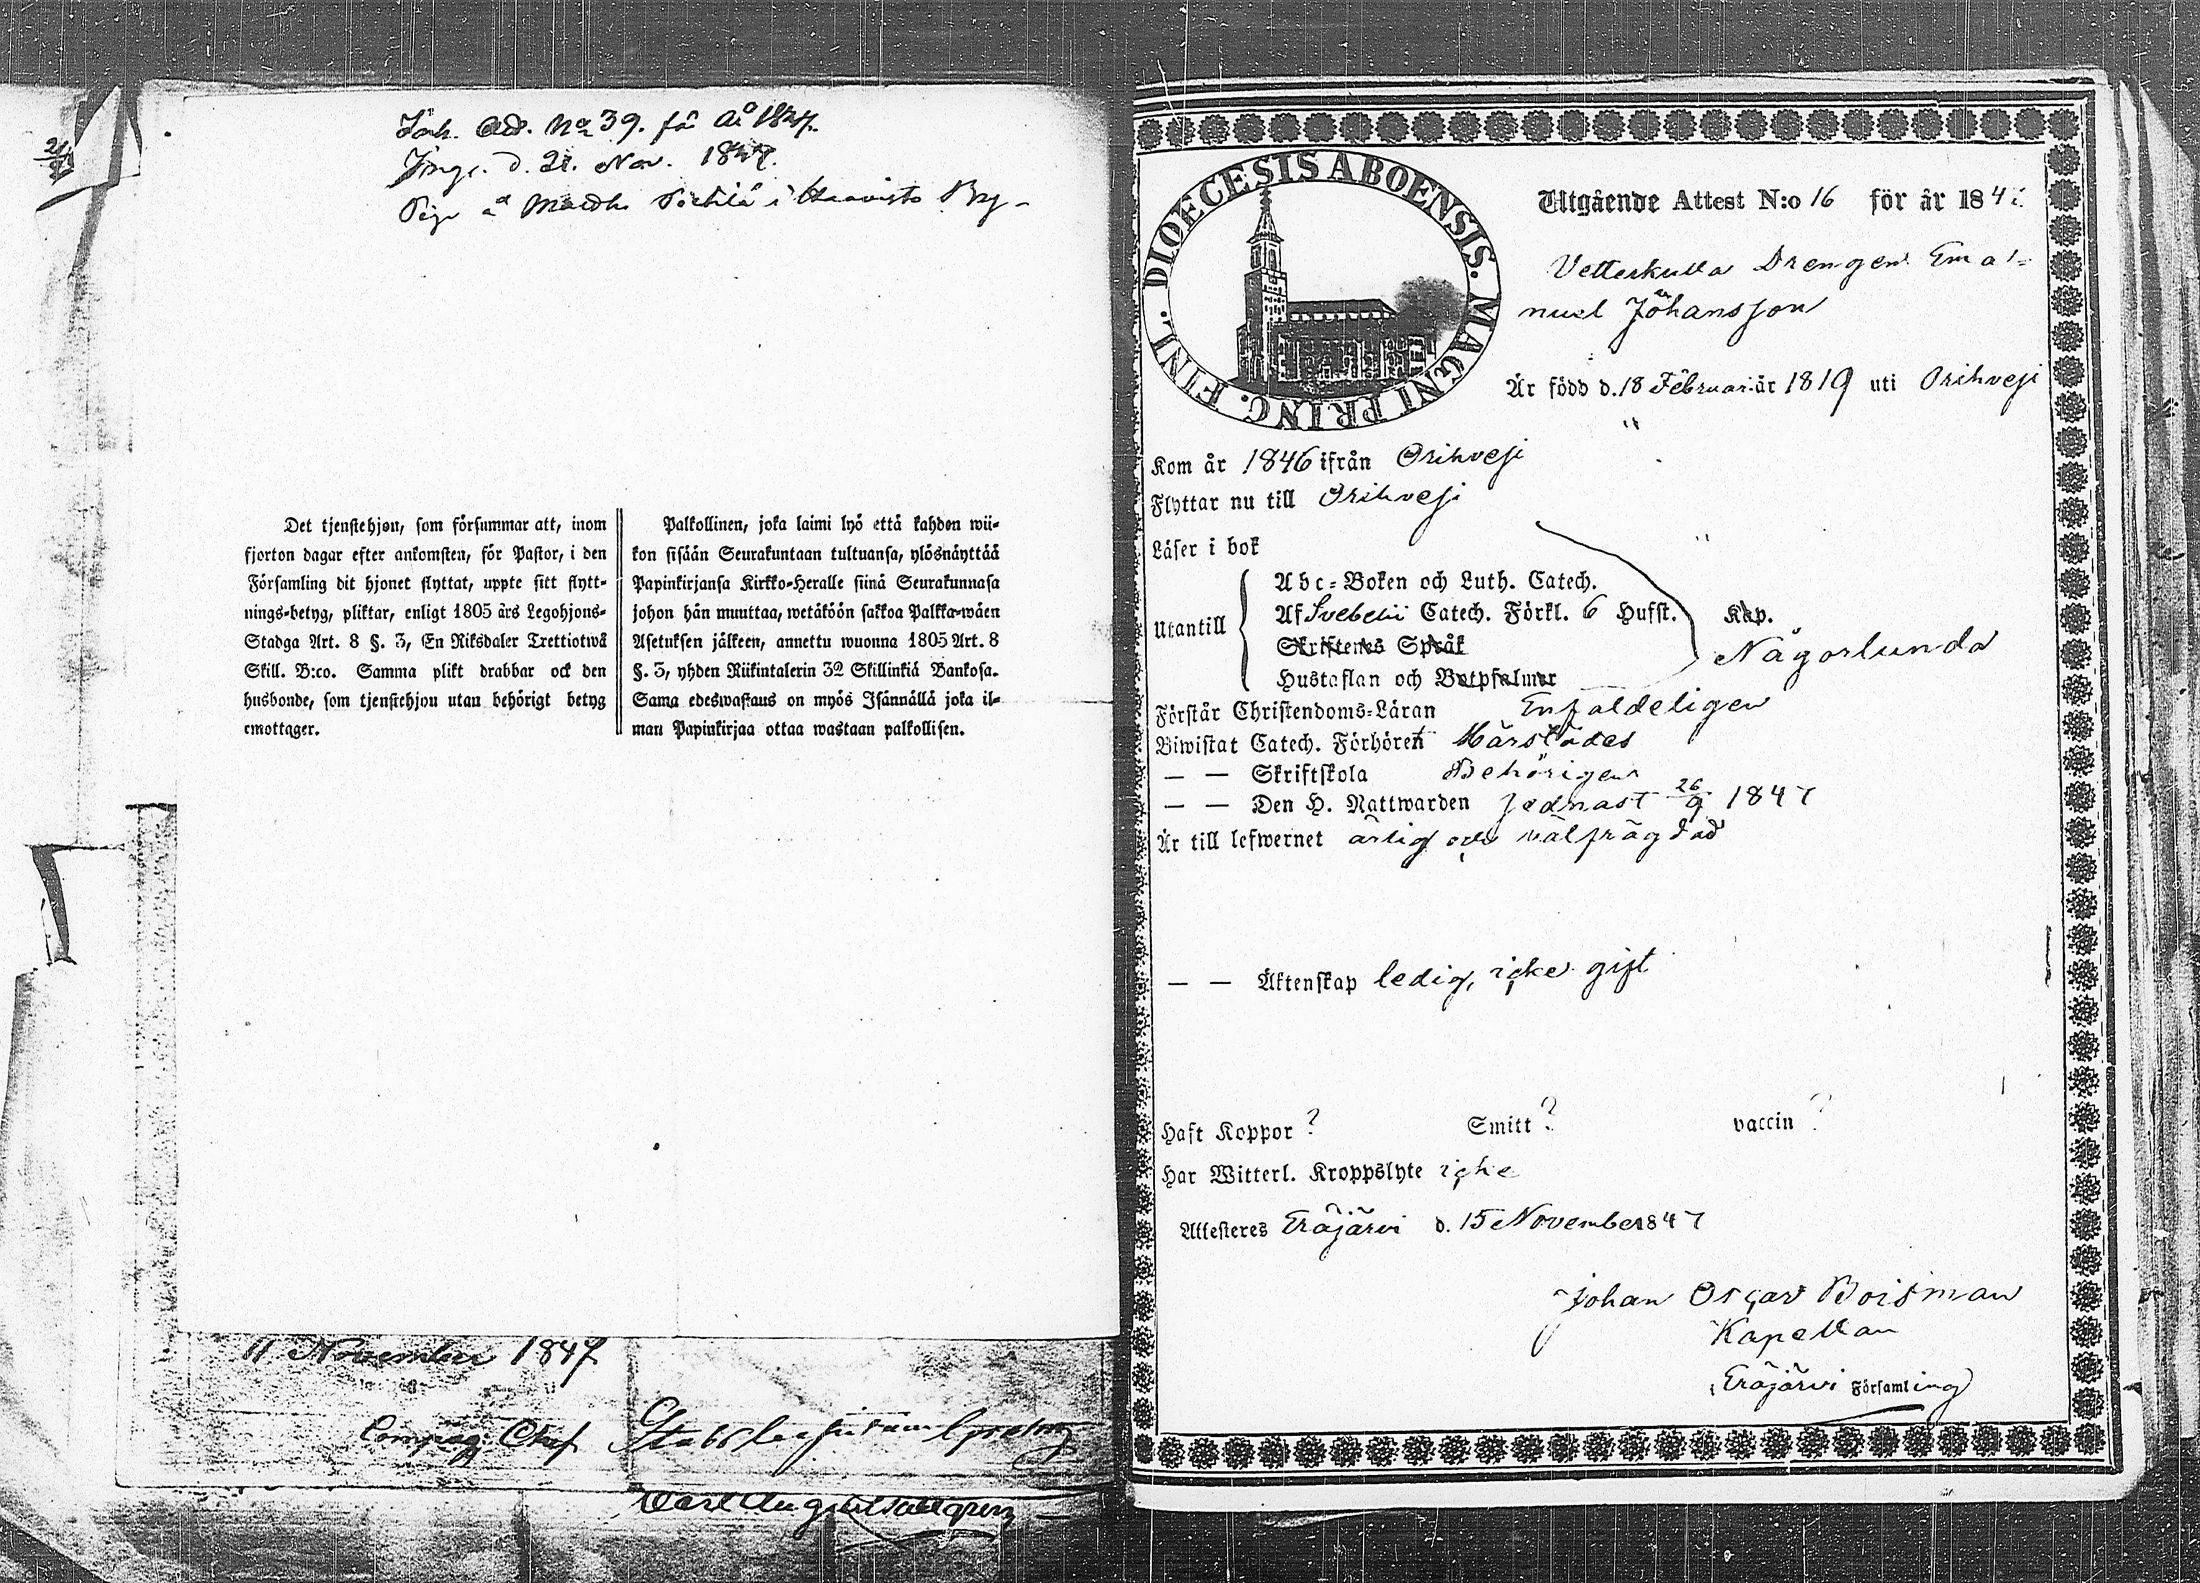 Ink. Att. No 39. för Aº 1847.
Ing. d. 21. Nov. 1847.
i Haavisto By
Det tjenstehjon, som försummar att, inom
fjorton dagar efter ankomsten, för Pastor, i den
Församling dit hjonet flyttat, uppte sitt flytt-
nings-betyg, pliktar, enligt 1805 års Legohjons-
Stadga Art. 8 §. 3, En Riksdaler Trettiotwå
Skill. B:co. Samma plikt drabbar ock den
husbonde, som tjenstehjon utan behörigt betyg
emottager.
Palkollinen, joka laimi lyö että kahden wii-
kon sisään Seurakuntaan tultuansa, ylösnäyttää
Papinkirjansa Kirkko-Heralle siinä Seurakunnasa
johon hän muuttaa, wetäköön sakkoa Palkka-wäen
Asetuksen jälkeen, annettu wuonna 1805 Art. 8
§. 3, yhden Riikintalerin 32 Skillinkiä Bankosa.
Sama edeswastaus on myös Isännällä joka il-
man Papinkirjaa ottaa wastaan palkollisen.
11 November 1847
Compag: Chef
Carl August Tallgren
DIOECESIS ABOENSIS. MAGNI PRINC. FINL.
Utgående Attest N:o 16 för år 184
Vetterkulla Drengen Ema=
nuel Johansson
Är född d. 18 Februari år 1819 uti Orihvesi
Kom år 1846 ifrån Orihvesi
Flyttar nu till Orihvesi
Läser i bok
Utantill
Abc=Boken och Luth. Catech.
Af Svebelii Catech. Förkl. 6 Hufst. Kap.
Skriftenes Språk
Hustaflan och Botpsalmer
Någorlunda
Förstår Christendoms=Läran Enfaldeligen
Biwistat Catech. Förhöret
— — Skriftskola Behörigen
— — Den H. Nattwarden sednast 26/9 1847
Är till lefwernet ärlig och välfrägdad
— — Äktenskap ledig, icke gift
Haft Koppor ? Smitt ? vaccin ?
Har Witterl. Kroppslyte icke
Attesteres Eräjärvi d. 15 November 1847
Johan Oscar Boisman
Kapellan
i Eräjärvi Församling